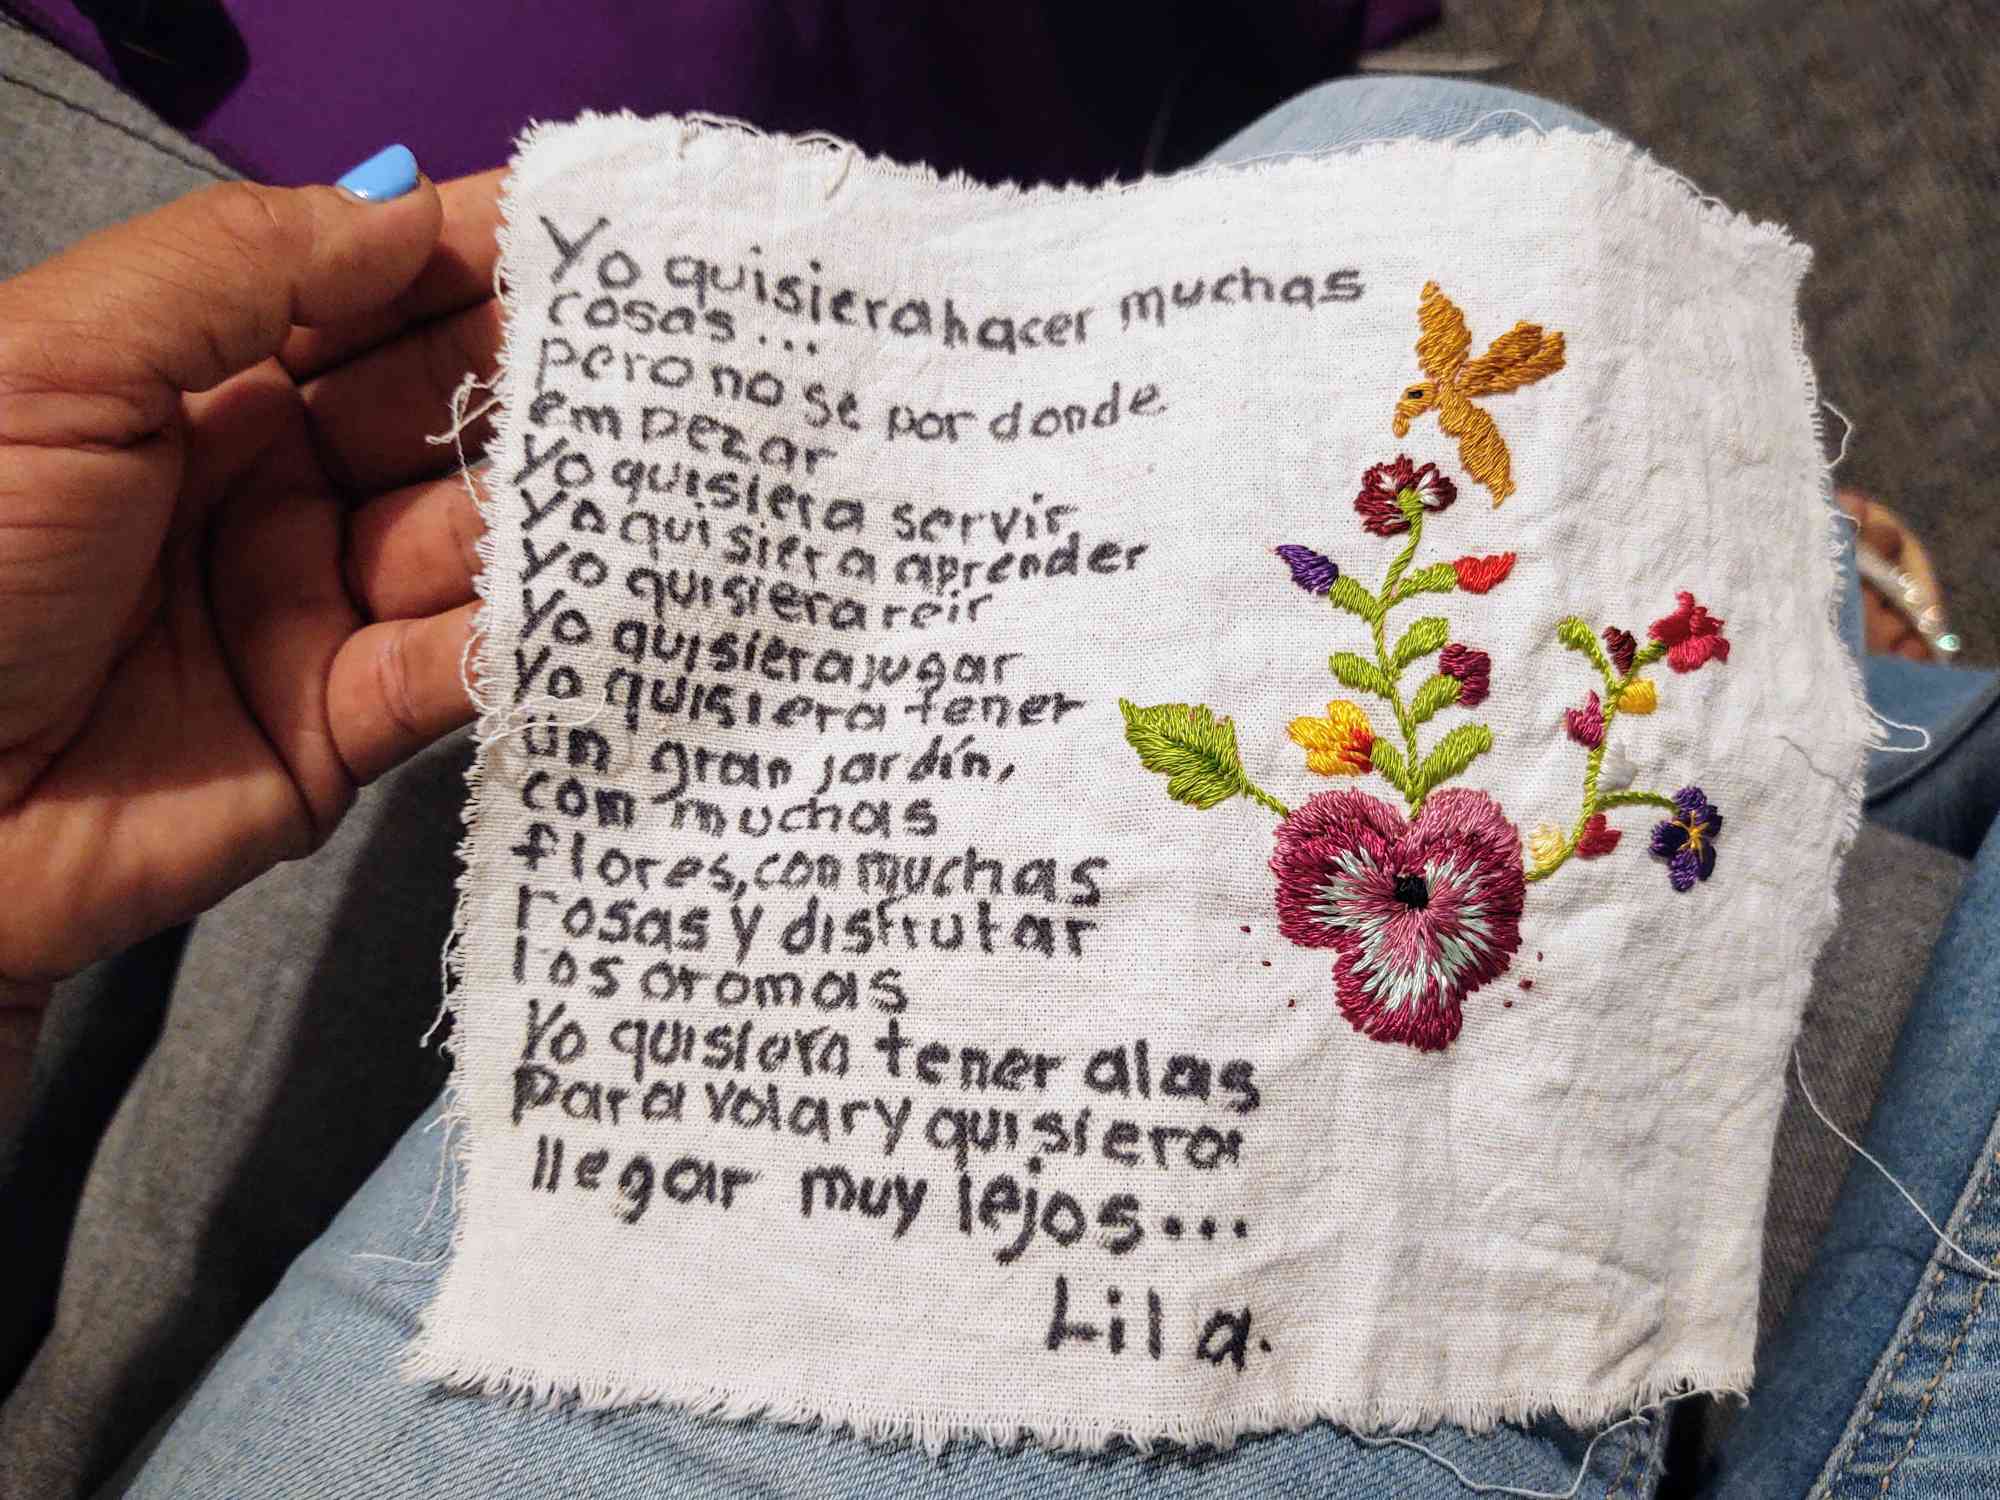 Yo quisiera hacer muchas
cosas...
pero no se por donde
empezar
Yo quisiera servir
Yo quisiera aprender
Yo quisiera reir
Yo quisiera jugar
Yo quisiera tener
un gran jardín,
con muchas
flores, con muchas
rosas y disfrutar
los aromas
Yo quisiera tener alas
para volar y quisiera
llegar muy lejos...
Lila.